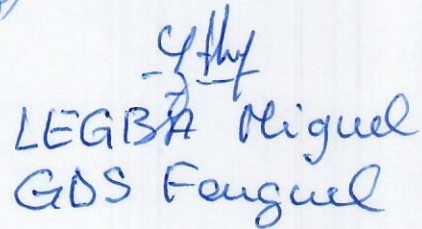 LEGBA Miguel
GDS Fanguel